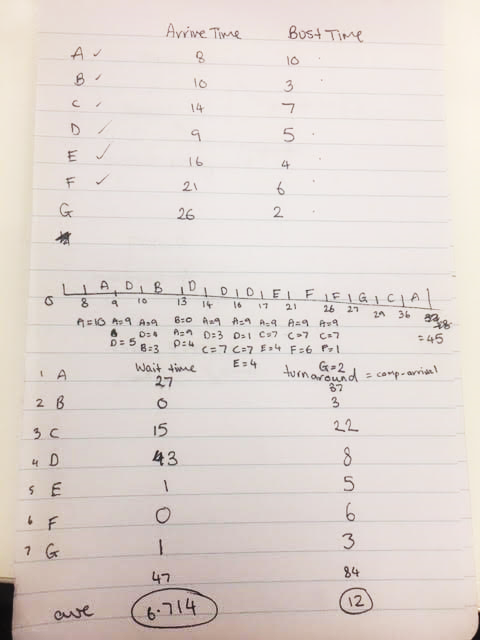 Arrive Time Bust Time
A ✓ 8 10
B ✓ 10 3
C ✓ 14 7
D ✓ 9 5
E ✓ 16 4
F ✓ 21 6
G 26 2
A D B D D D E F F G C A
0 8 9 10 13 14 16 17 21 26 27 29 36 = 45
A=10 A=9 A=9 B=0 A=9 A=9 A=9 A=9 A=9
D=4 A=9 D=3 D=1 C=7 C=7 C=7
D=5 B=3 D=4 C=7 C=7 E=4 F=6 F=1
E=4 G=2
Wait time turnaround = comp-arrival
1 A 27 37
2 B 0 3
3 C 15 22
4 D 3 8
5 E 1 5
6 F 0 6
7 G 1 3
47 84
ave 6.714 12